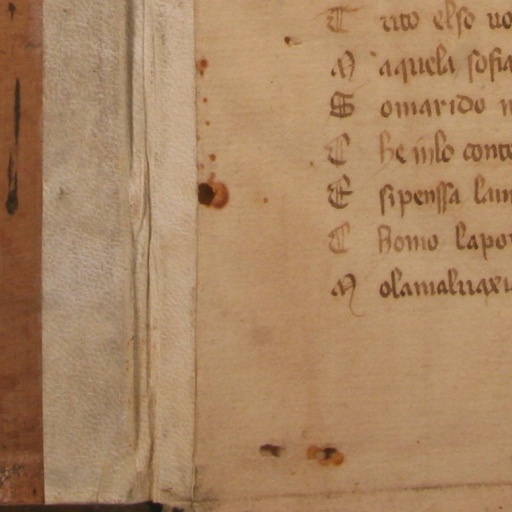 T uto elso uo
M aquela sofia
S omarido n
C he inlo conte
E sipenssa lam
C homo lapo
M olamaluaxi